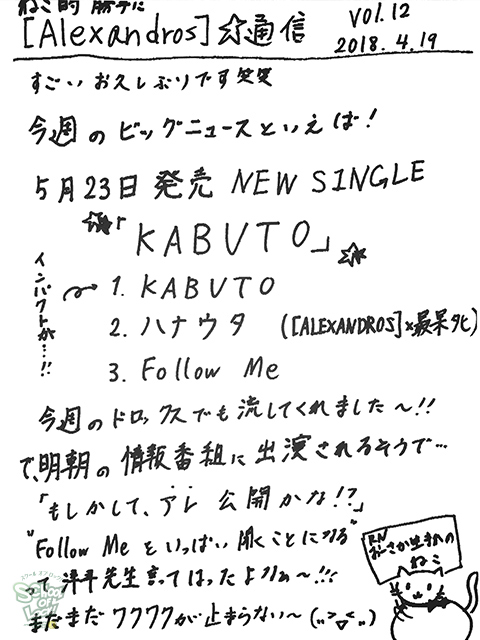 ねこ的 勝手に
[Alexandros]☆通信
VOl.12
2018.4.19
すごい お久しぶりです笑笑
今週のビッグニュースといえば!
5月23日 発売 NEW SINGLE
「KABUTO」
インパクトが…!!
1. KABUTO
2. ハナウタ ([ALEXANDROS]×最果タヒ)
3. Follow Me
今週のドロックスでも流してくれました〜!!
で、明朝の情報番組に出演されるそうで…
「もしかして、アレ 公開かな!?」
"Follow Me をいっぱい聞くことになる"
って 洋平先生言ってはったよなぁ〜!!!
まだまだ ワクワクが止まらない〜
RN
おーさか生まれの
ねこ